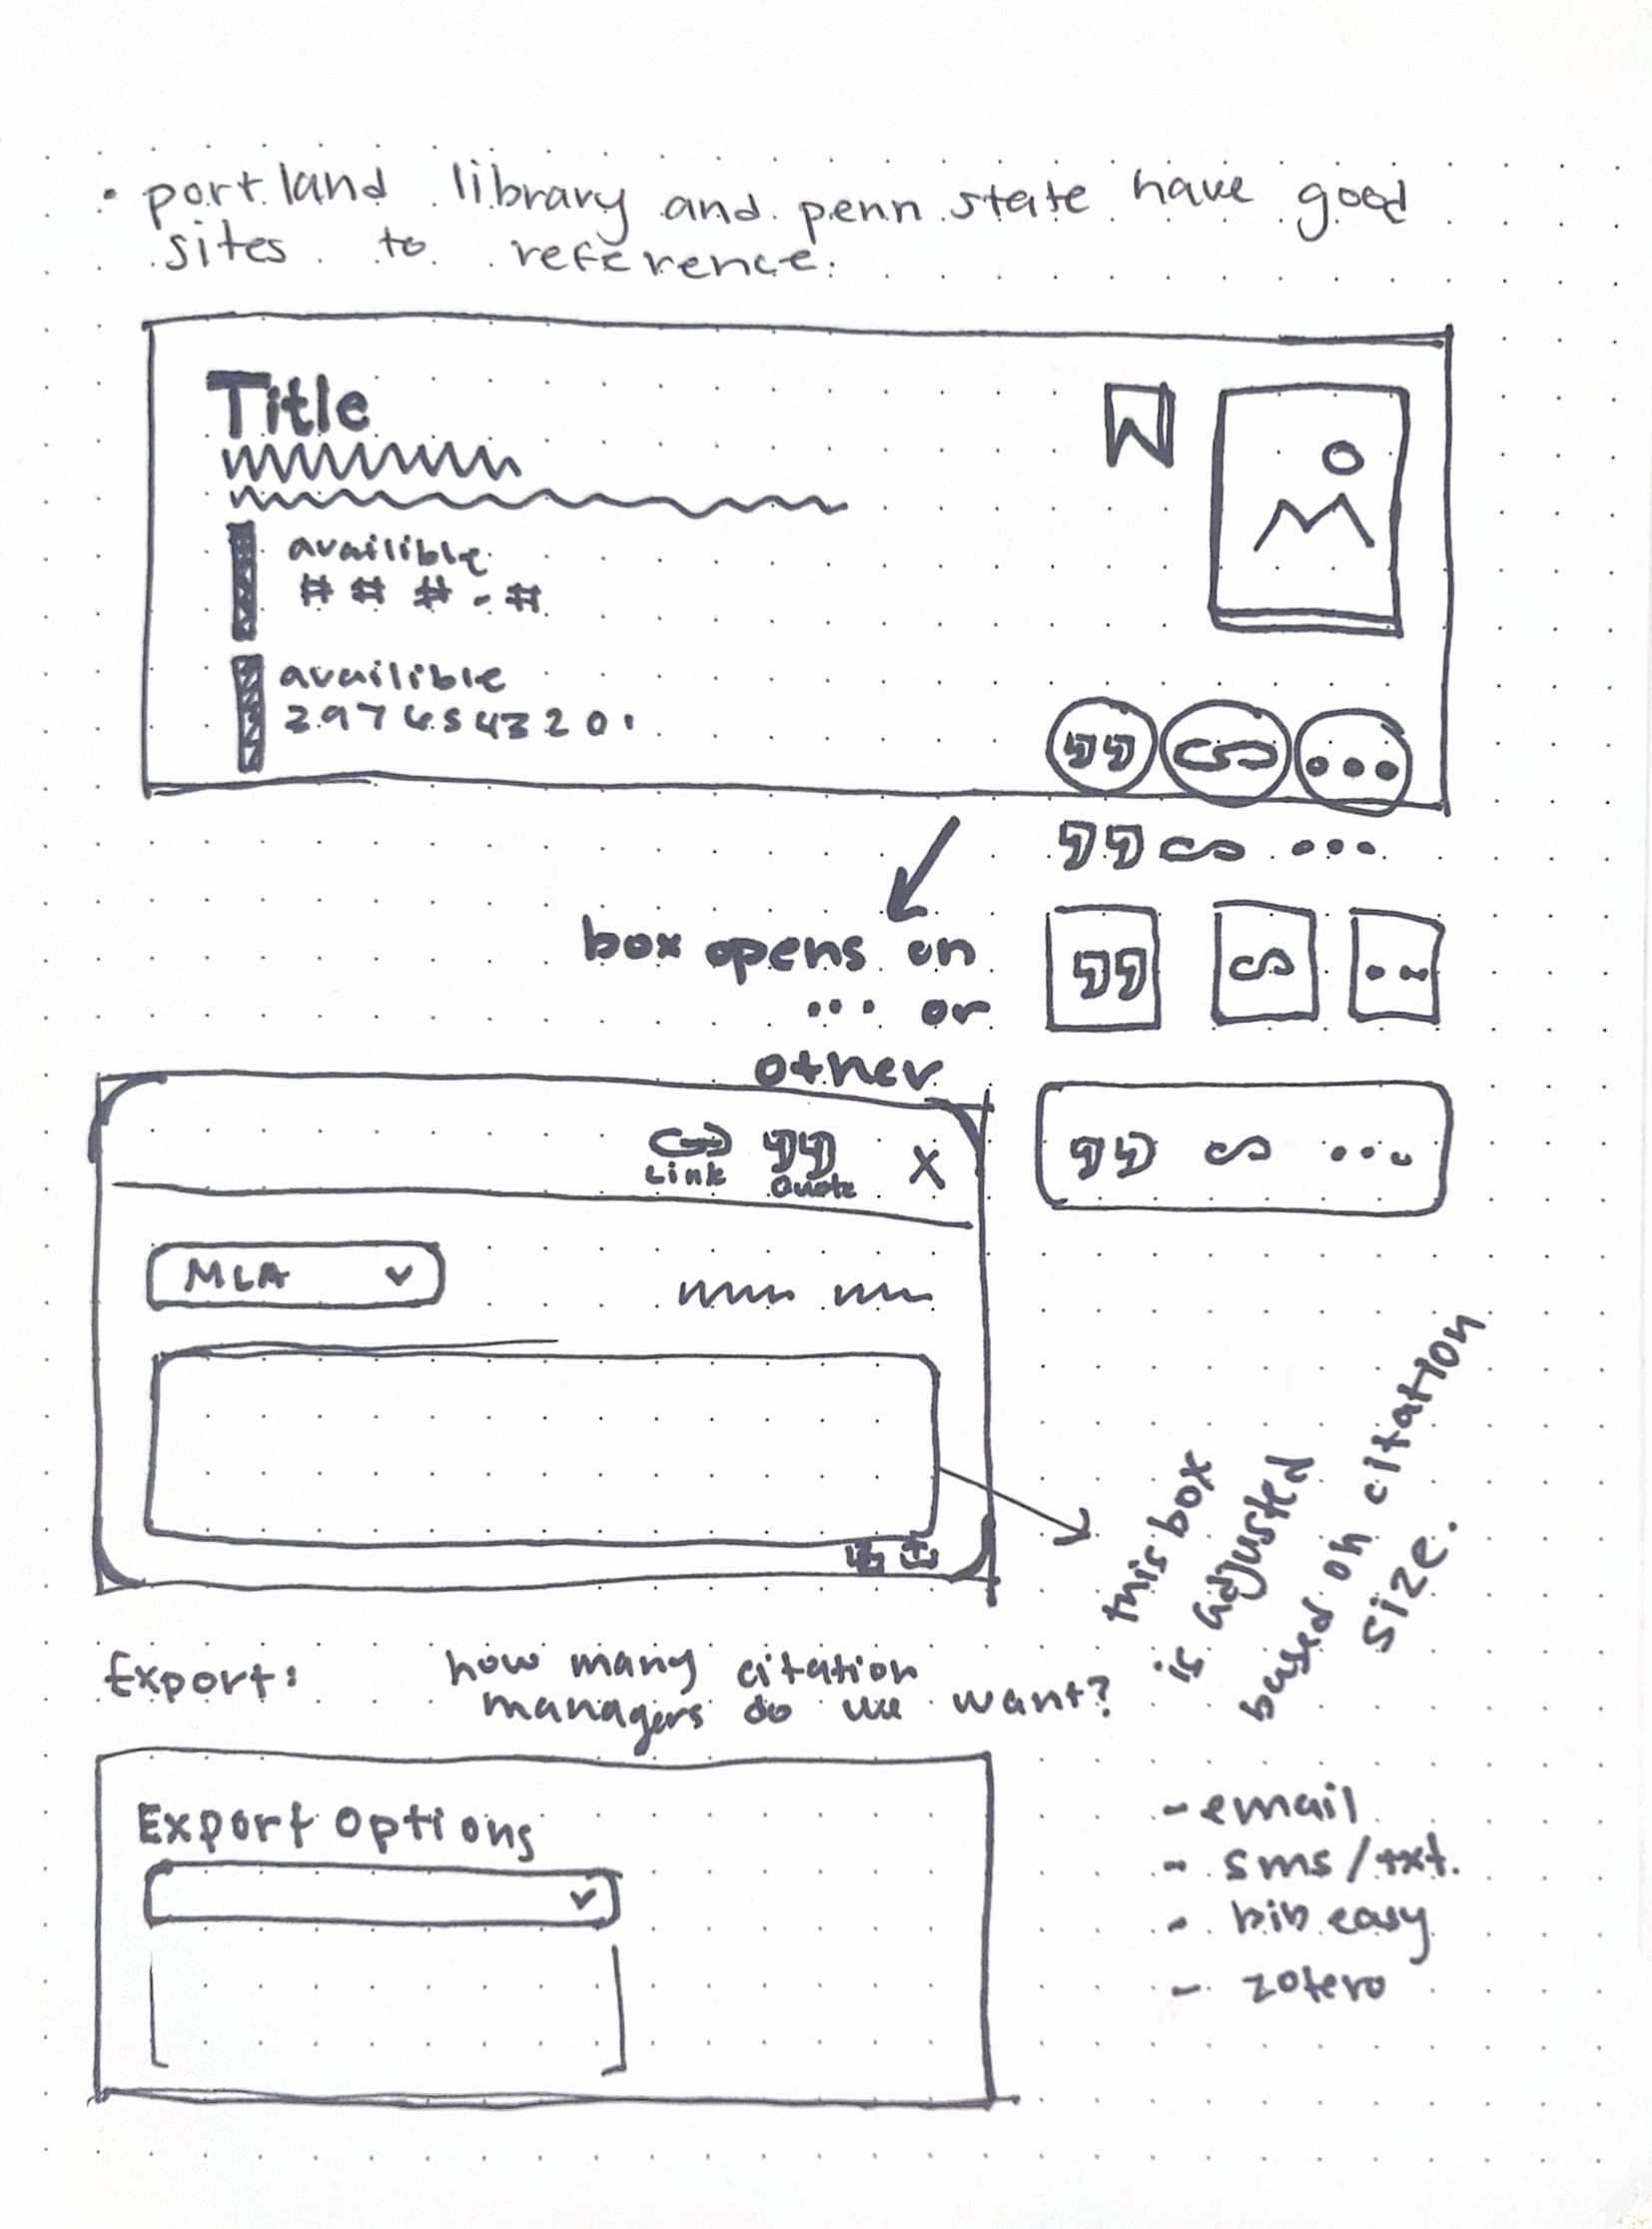 • portland library and penn state have good
sites to reference.
Title
availible
# # # - #
availible
2976543201
box opens on
... or
other
Link
Quote
X
MLA
this box
is adjusted
based on citation
size.
Export:
how many citation
managers do we want?
Export Options
- email
- sms/txt.
- bib easy
- zotero